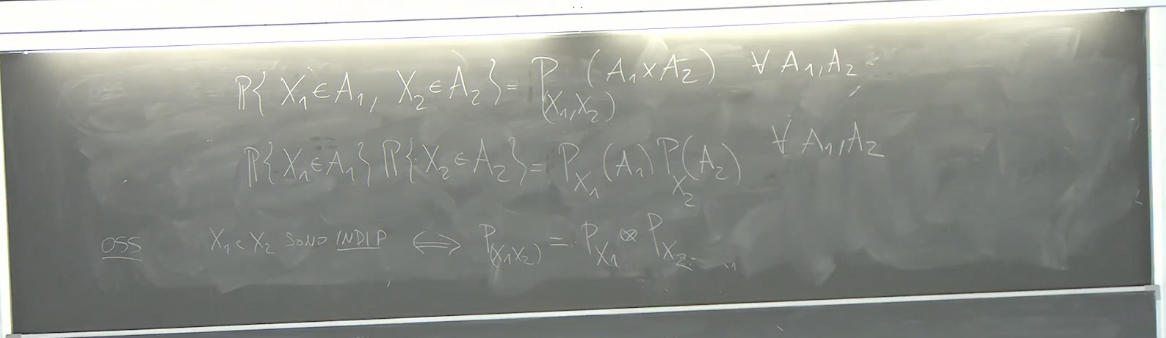 ℙ{X₁∈A₁, X₂∈A₂} = P_(X₁,X₂) (A₁×A₂) ∀ A₁,A₂
ℙ{X₁∈A₁} ℙ{X₂∈A₂} = P_X₁(A₁) P_X₂(A₂) ∀ A₁,A₂
OSS X₁ e X₂ SONO INDIP ⟺ P_(X₁X₂) = P_X₁ ⊗ P_X₂